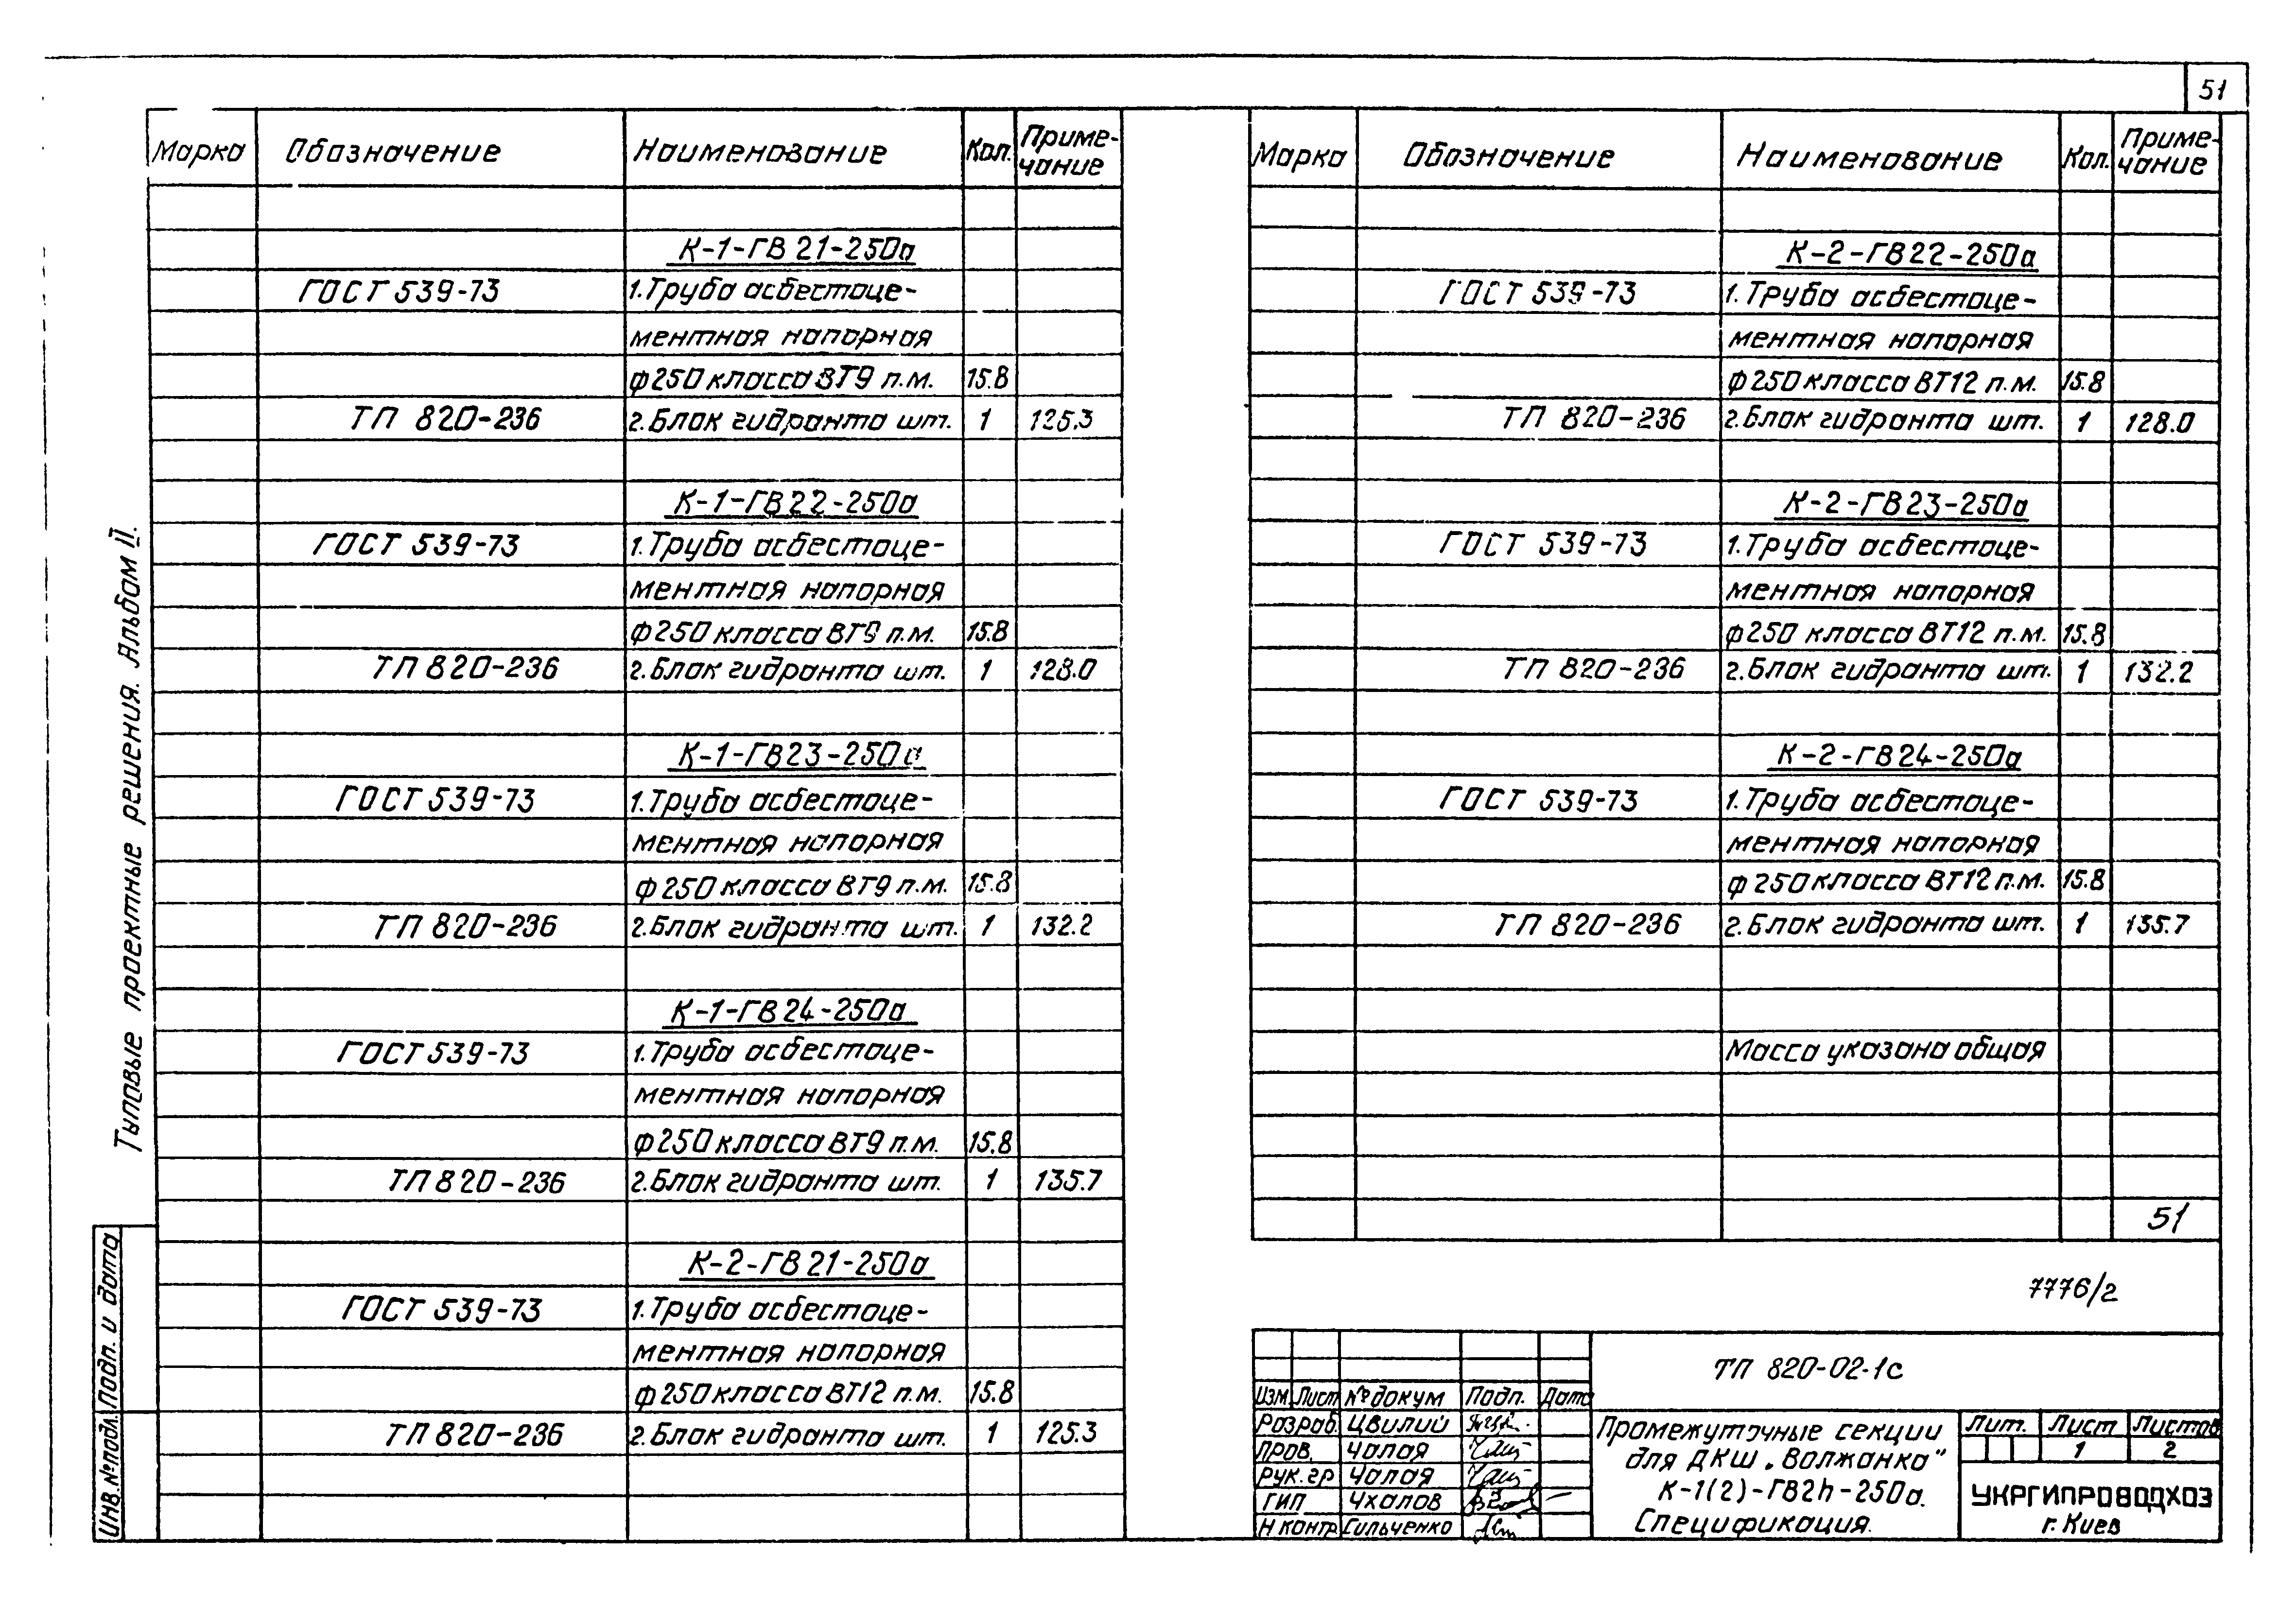 51
Марка Обозначение Наименование Кол. Приме-
чание
К-1-ГВ21-250а
ГОСТ 539-73 1.Труба асбестоце-
ментная напорная
ф250 класса ВТ9 п.м. 15.8
ТП 820-236 2.Блок гидранта шт. 1 125.3
К-1-ГВ22-250а
ГОСТ 539-73 1.Труба асбестоце-
ментная напорная
ф250 класса ВТ9 п.м. 15.8
ТП 820-236 2.Блок гидранта шт. 1 128.0
К-1-ГВ23-250а
ГОСТ 539-73 1.Труба асбестоце-
ментная напорная
ф250 класса ВТ9 п.м. 15.8
ТП 820-236 2.Блок гидранта шт. 1 132.2
К-1-ГВ24-250а
ГОСТ 539-73 1.Труба асбестоце-
ментная напорная
ф250 класса ВТ9 п.м. 15.8
ТП 820-236 2.Блок гидранта шт. 1 135.7
К-2-ГВ21-250а
ГОСТ 539-73 1.Труба асбестоце-
ментная напорная
ф250 класса ВТ12 п.м. 15.8
ТП 820-236 2.Блок гидранта шт. 1 125.3
Марка Обозначение Наименование Кол. Приме-
чание
К-2-ГВ22-250а
ГОСТ 539-73 1.Труба асбестоце-
ментная напорная
ф250 класса ВТ12 п.м. 15.8
ТП 820-236 2.Блок гидранта шт. 1 128.0
К-2-ГВ23-250а
ГОСТ 539-73 1.Труба асбестоце-
ментная напорная
ф250 класса ВТ12 п.м. 15.8
ТП 820-236 2.Блок гидранта шт. 1 132.2
К-2-ГВ24-250а
ГОСТ 539-73 1.Труба асбестоце-
ментная напорная
ф250 класса ВТ12 п.м. 15.8
ТП 820-236 2.Блок гидранта шт. 1 135.7
Масса указана общая
51
7776/2
ТП 820-02-1с
Изм. Лист №докум Подп. Дата
Разраб. Цвилий
Пров. Чалая
Рук.гр Чалая
ГИП Чхалов
Н контр. Гильченко
Промежуточные секции
для ДКШ „Волжанка"
К-1(2)-ГВ2h-250а.
Спецификация.
Лит. Лист Листов
1 2
УКРГИПРОВОДХОЗ
г. Киев
Типовые проектные решения. Альбом II.
Инв.№подл. Подп. и дата